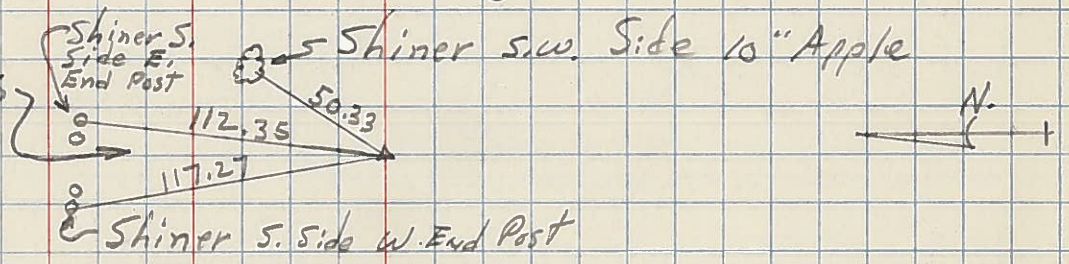 Shiner S.
Side E.
End Post
Shiner S.W. Side 10" Apple
50.33
N.
112.35
117.27
Shiner S. Side W. End Post